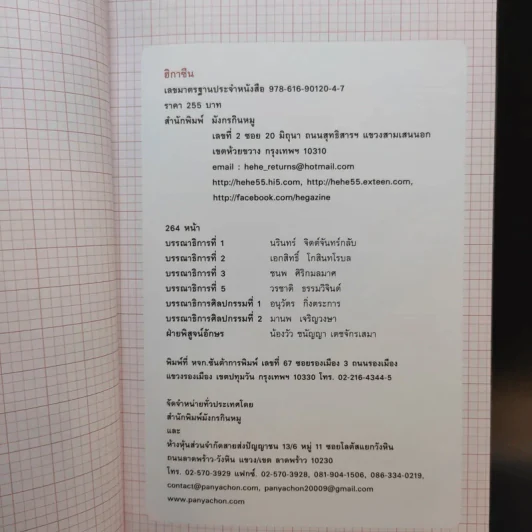 ฮิกาซีน
เลขมาตรฐานประจำหนังสือ 978-616-90120-4-7
ราคา 255 บาท
สำนักพิมพ์ มังกรกินหมู
เลขที่ 2 ซอย 20 มิถุนา ถนนสุทธิสารฯ แขวงสามเสนนอก
เขตห้วยขวาง กรุงเทพฯ 10310
email : hehe_returns@hotmail.com
http://hehe55.hi5.com, http://hehe55.exteen.com,
http://facebook.com/hegazine
264 หน้า
บรรณาธิการที่ 1 นรินทร์ จิตต์จันทร์กลับ
บรรณาธิการที่ 2 เอกสิทธิ์ โกสินทโรบล
บรรณาธิการที่ 3 ชนพ ศิริกมลมาศ
บรรณาธิการที่ 5 วรชาติ ธรรมวิจินต์
บรรณาธิการศิลปกรรมที่ 1 อนุวัตร กิ่งตระการ
บรรณาธิการศิลปกรรมที่ 2 มานพ เจริญวงษา
ฝ่ายพิสูจน์อักษร น้องวัว ชนัญญา เตชจักรเสมา
พิมพ์ที่ หจก.ขันติการพิมพ์ เลขที่ 67 ซอยรองเมือง 3 ถนนรองเมือง
แขวงรองเมือง เขตปทุมวัน กรุงเทพฯ 10330 โทร. 02-216-4344-5
จัดจำหน่ายทั่วประเทศโดย
สำนักพิมพ์มังกรกินหมู
และ
ห้างหุ้นส่วนจำกัดสายส่งปัญญาชน 13/6 หมู่ 11 ซอยโลตัสแยกวังหิน
ถนนลาดพร้าว-วังหิน แขวง/เขต ลาดพร้าว 10230
โทร. 02-570-3929 แฟกซ์. 02-570-3928, 081-904-1506, 086-334-0219,
contact@panyachon.com, panyachon20009@gmail.com
www.panyachon.com